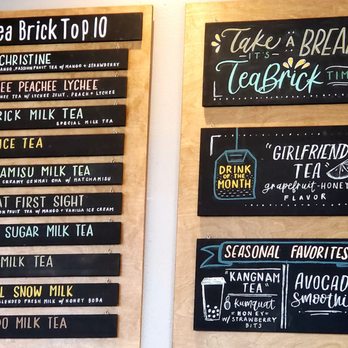 ea Brick Top 10
CHRISTINE
PASSIONFRUIT TEA W/ MANGO + STRAWBERRY
EE PEACHEE LYCHEE
TEA W/ LYCHEE JUST, PEACH + LYCHEE
RICK MILK TEA
SPECIAL MILK TEA
ICE TEA
AMISU MILK TEA
CREAMY GENMAI CHA W/ MATCHAMISU
AT FIRST SIGHT
FRUIT TEA W/ MANGO + VANILLA ICE CREAM
SUGAR MILK TEA
MILK TEA
L SNOW MILK
BLENDED FRESH MILK W/ HONEY BODA
DO MILK TEA
Take A BREA
IT'S
TeaBrick TIM
DRINK
OF THE
MONTH
"GIRLFRIEND
TEA
grapefruit-HONEY
FLAVOR
SEASONAL FAVORITES
"KANGNAM
TEA"
kumquat
HONEY
W/ STRAWBERRY
BITS
AVOCAD
Smoothi